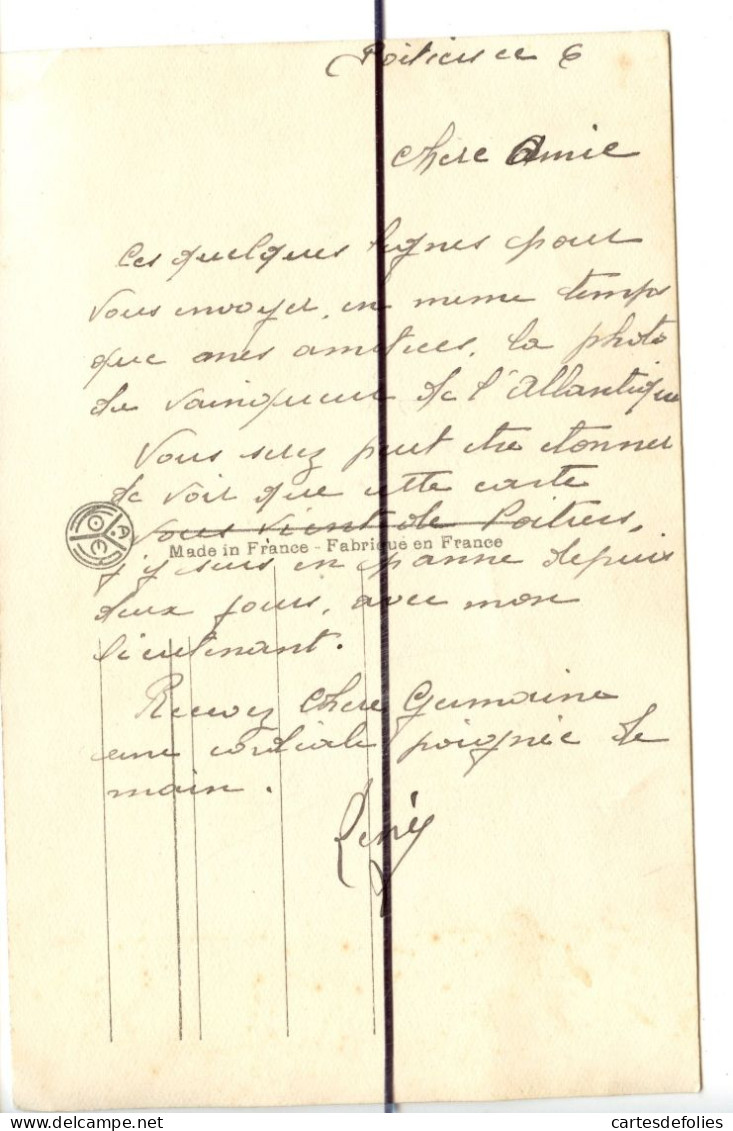 Poitiers ce 6
Chere Amie
Ces quelques lignes pour
vous envoyer, en meme temps
que mes amities, la photo
du vainqueur de l'Atlantique
Vous serez peut etre etonner
de voir que cette carte
vous vient de Poitiers,
Made in France - Fabrique en France
j'y suis en panne depuis
deux jours, avec mon
lieutenant.
Recevez Chere Germaine
une cordiale poignée de
main.
René
cartesdefolies